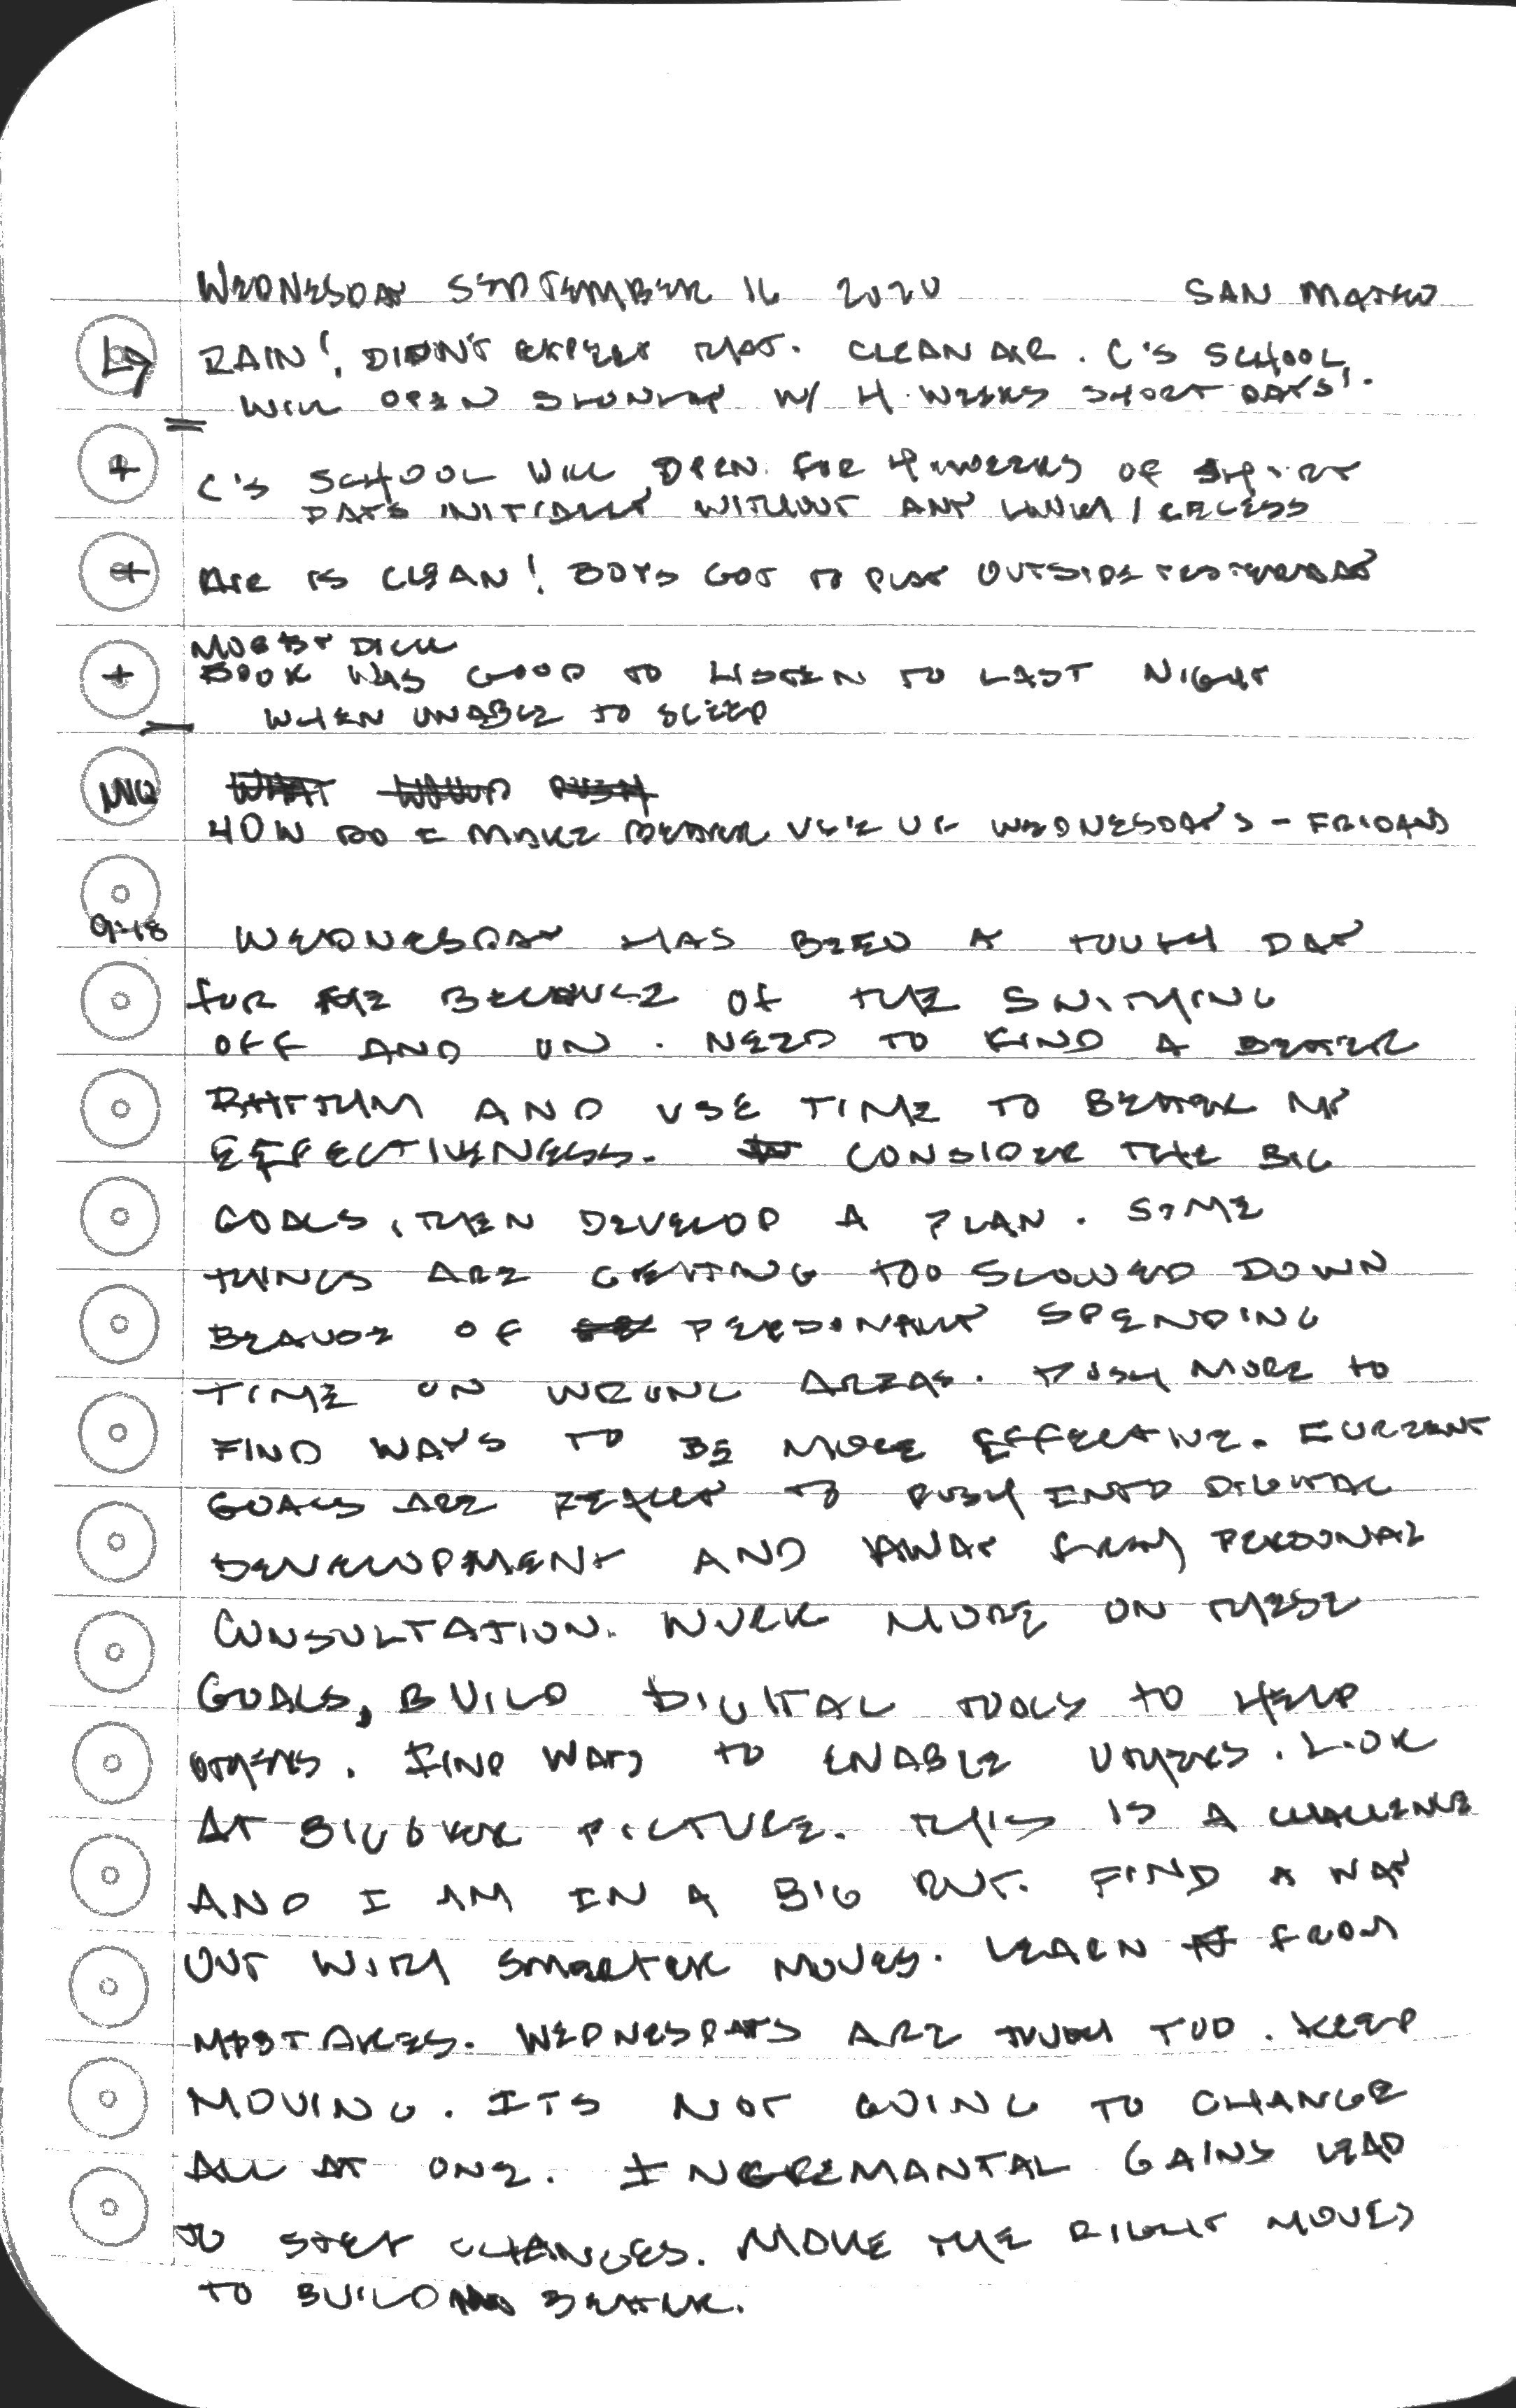 WEDNESDAY SEPTEMBER 16 2020 SAN MATEO
RAIN! DIDN'T EXPECT THAT. CLEAN AIR. C'S SCHOOL
WILL OPEN SLOWLY W/ 4 WEEKS SHORT DAYS!.
+ C'S SCHOOL WILL OPEN FOR 4 WEEKS OF SHORT
DAYS INITIALLY WITHOUT ANY LUNCH / RECESS
+ AIR IS CLEAN! BOYS GOT TO PLAY OUTSIDE YESTERDAY
MOBBY DICK
+ BOOK WAS GOOD TO LISTEN TO LAST NIGHT
WHEN UNABLE TO SLEEP
WHAT WOULD PUSH
HOW DO I MAKE BETTER USE OF WEDNESDAY'S - FRIDAYS
9:18 WEDNESDAY HAS BEEN A TOUGH DAY
FOR ME BECAUSE OF THE SWITCHING
OFF AND ON. NEED TO FIND A BETTER
RHYTHM AND USE TIME TO BETTER MY
EFFECTIVENESS. CONSIDER THE BIG
GOALS, THEN DEVELOP A PLAN. SOME
THINGS ARE GETTING TOO SLOWED DOWN
BECAUSE OF PERSONALLY SPENDING
TIME ON WRONG AREAS. PUSH MORE TO
FIND WAYS TO BE MORE EFFECTIVE. CURRENT
GOALS ARE REALLY TO PUSH INTO DIGITAL
DEVELOPMENT AND AWAY FROM PERSONAL
CONSULTATION. WORK MORE ON THESE
GOALS, BUILD DIGITAL TOOLS TO HELP
OTHERS. FIND WAYS TO ENABLE OTHERS. LOOK
AT BIGGER PICTURE. THIS IS A CHALLENGE
AND I AM IN A BIG RUT. FIND A WAY
OUT WITH SMARTER MOVES. LEARN FROM
MISTAKES. WEDNESDAYS ARE TOUGH TOO. KEEP
MOVING. ITS NOT GOING TO CHANGE
ALL AT ONE. INCREMANTAL GAINS LEAD
TO STEP CHANGES. MAKE THE RIGHT MOVES
TO BUILD BETTER.